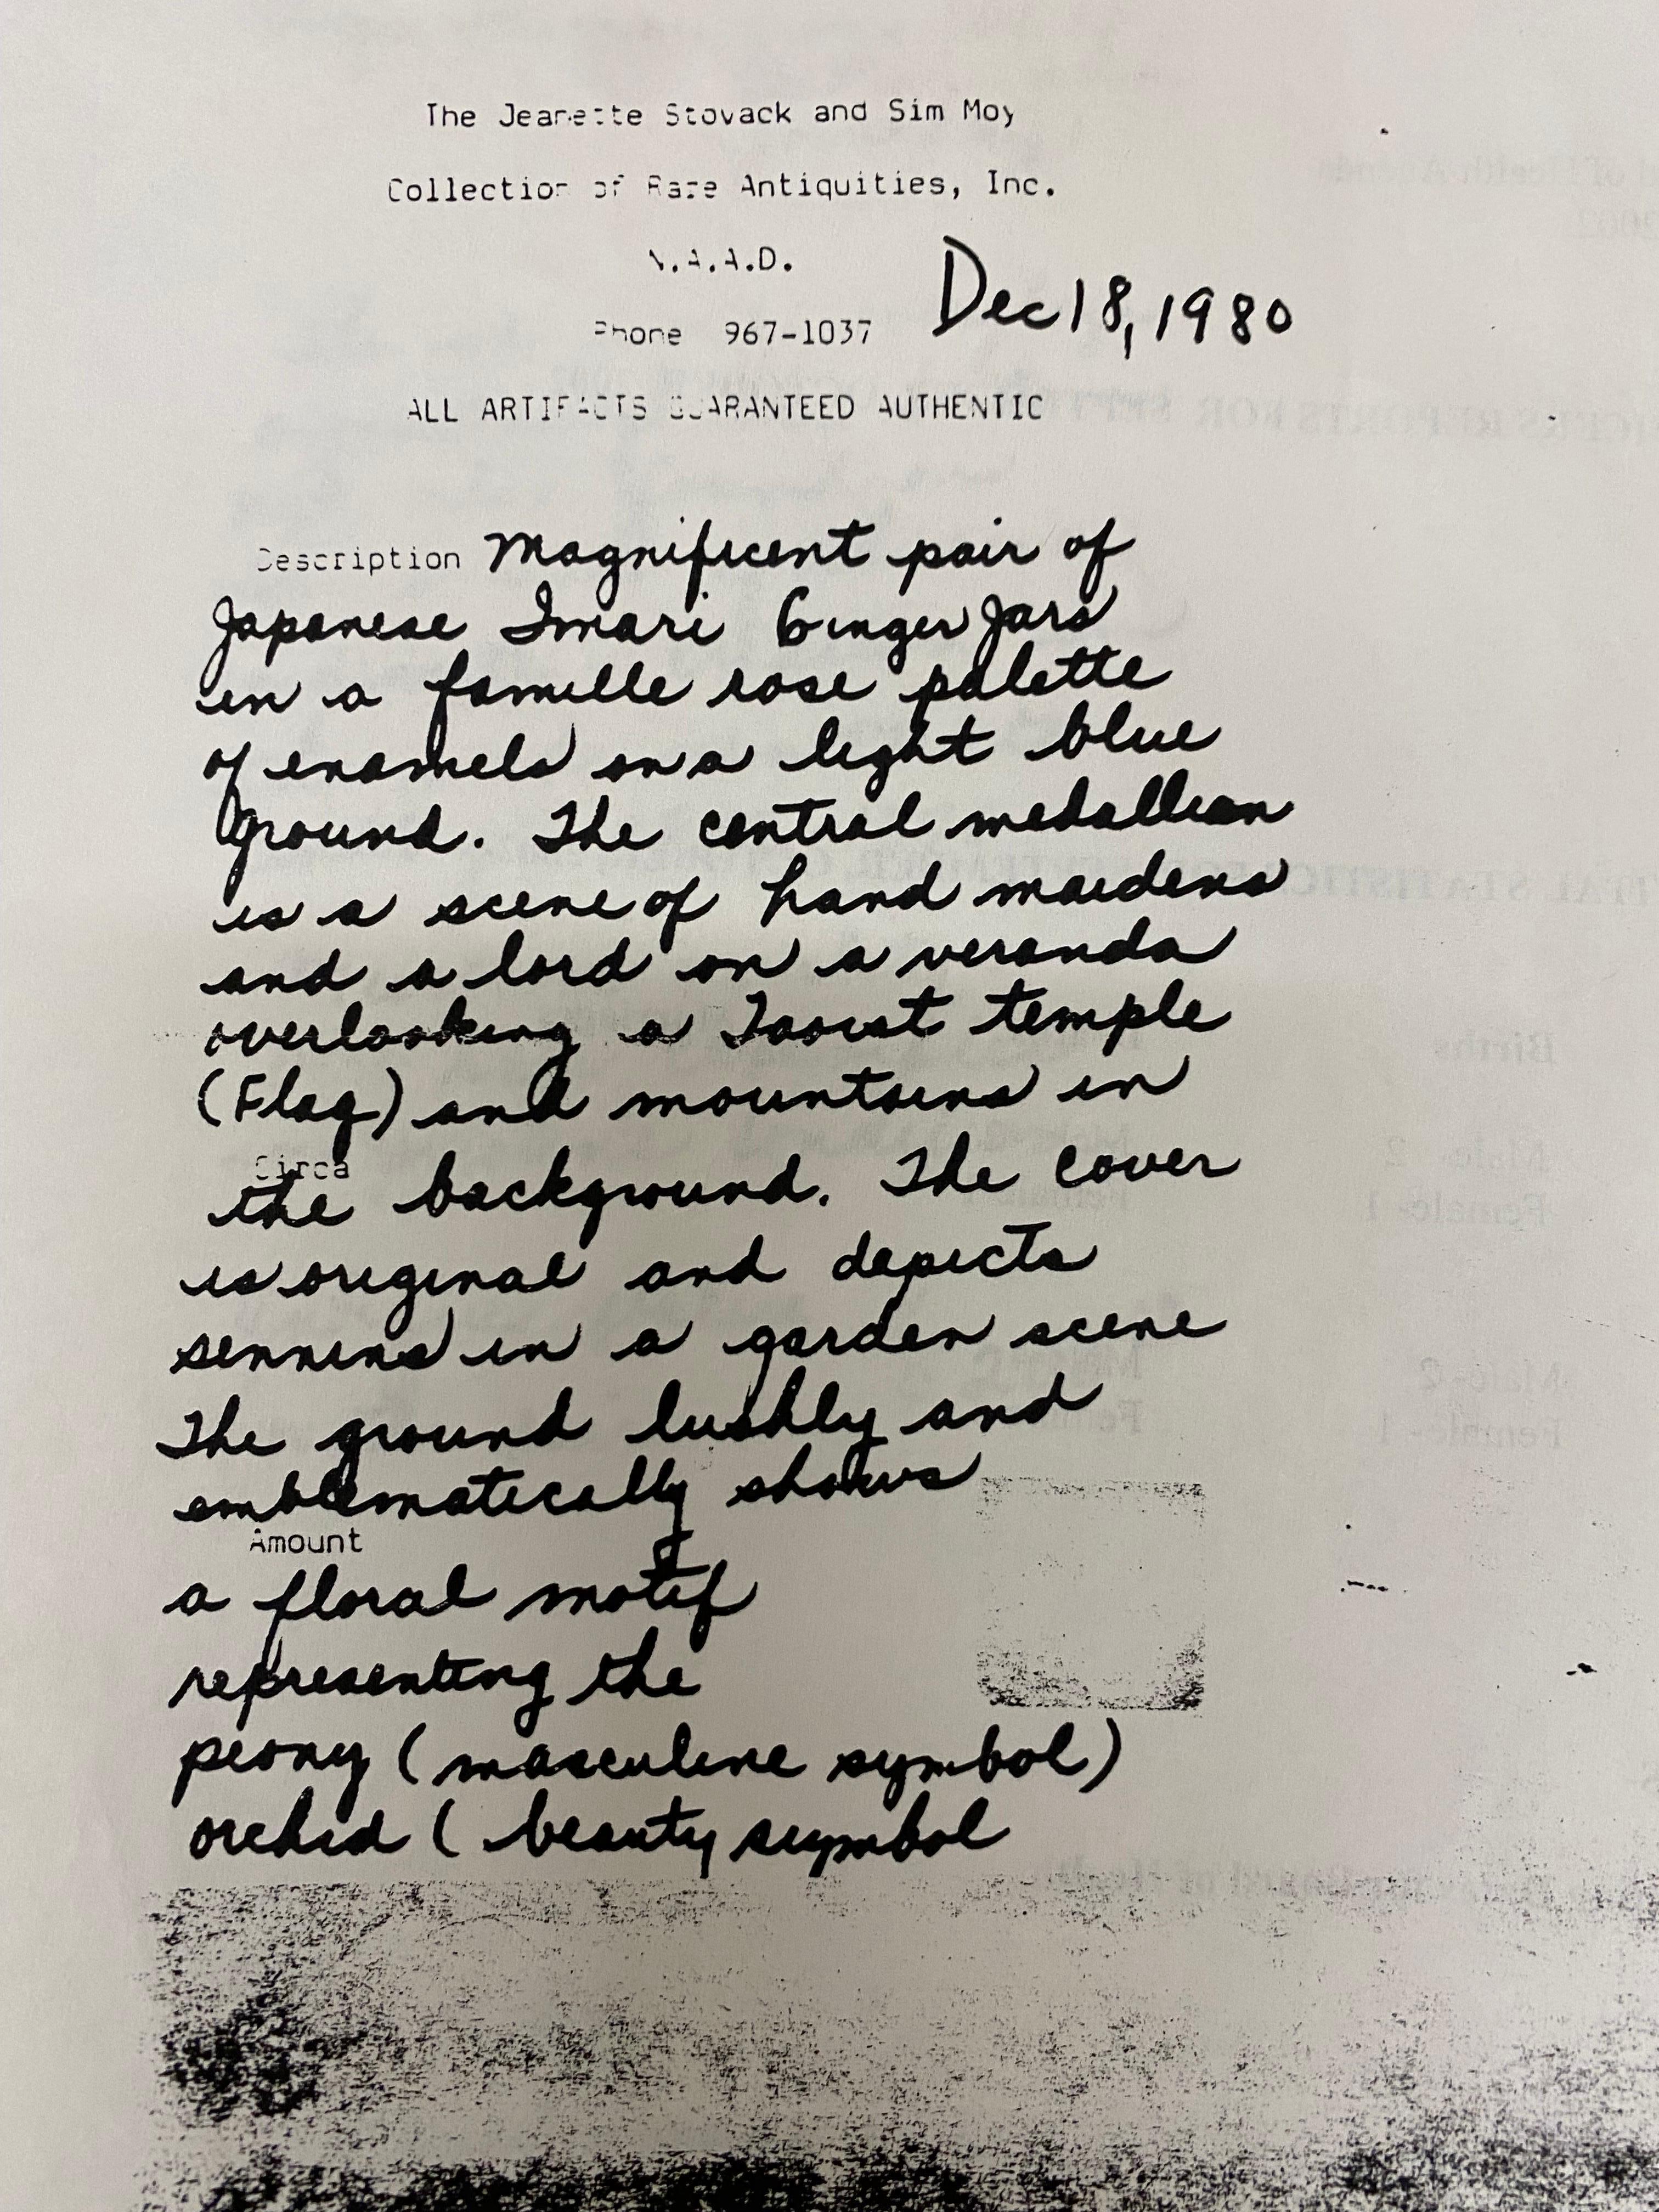 The Jeanette Stovack and Sim Moy
Collection of Rare Antiquities, Inc.
N.A.A.D.
Dec 18, 1980
Phone 967-1037
ALL ARTIFACTS GUARANTEED AUTHENTIC
Description Magnificent pair of
Japanese Imari Ginger Jars
in a famille rose palette
of enamels on a light blue
ground. The central medallion
is a scene of hand maidens
and a lord on a veranda
overlooking a Taoist temple
(Flag) and mountains in
Circa
the background. The cover
is original and depicts
sennins in a garden scene
The ground lushly and
emblematically shows
Amount
a floral motif
representing the
peony (masculine symbol)
orchid (beauty symbol
Births
Male-2
Female-1
Male-2
Female-1